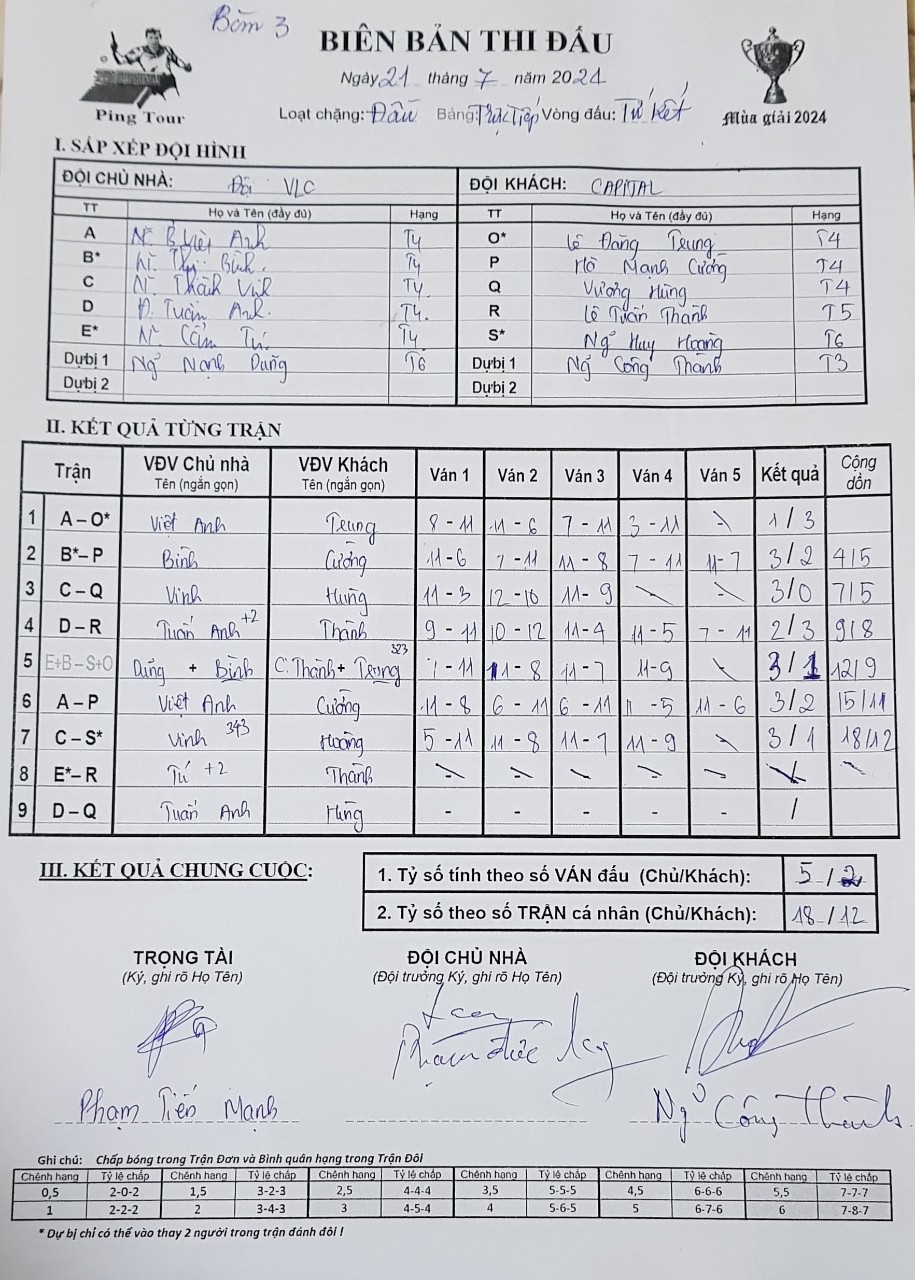 Bòm 3
BIÊN BẢN THI ĐẤU
Ping Tour
Mùa giải 2024
Ngày 21 tháng 7 năm 2024
Loạt chặng: Đấu Bảng: Trực Tiếp Vòng đấu: Tứ kết
I. SẮP XẾP ĐỘI HÌNH
ĐỘI CHỦ NHÀ: Đội VLC ĐỘI KHÁCH: CAPITAL
TT Họ và Tên (đầy đủ) Hạng TT Họ và Tên (đầy đủ) Hạng
A N. Việt Anh T4 O* Lê Đăng Trung T4
B* N. Bình T4 P Hồ Mạnh Cường T4
C N. Thành Vinh T4 Q Vương Hùng T4
D Đ. Tuấn Anh T4 R Lê Tuấn Thành T5
E* N. Cẩm Tú T4 S* Ngº Huy Hoàng T6
Dự bị 1 Ngº Mạnh Dũng T6 Dự bị 1 Ngº Công Thành T3
Dự bị 2 Dự bị 2
II. KẾT QUẢ TỪNG TRẬN
Trận VĐV Chủ nhà Tên (ngắn gọn) VĐV Khách Tên (ngắn gọn) Ván 1 Ván 2 Ván 3 Ván 4 Ván 5 Kết quả Cộng dồn
1 A – O* Việt Anh Trung 8 - 11 11 - 6 7 - 11 3 - 11 1 / 3
2 B*– P Bình Cường 11 - 6 7 - 11 11 - 8 7 - 11 11 - 7 3 / 2 4/5
3 C – Q Vinh Hùng 11 - 3 12 - 10 11 - 9 3 / 0 7/5
4 D – R Tuấn Anh +2 Thành 9 - 11 10 - 12 11 - 4 11 - 5 7 - 11 2 / 3 9/8
5 E+B – S+O Dũng + Bình C. Thành + Trung 323 7 - 11 11 - 8 11 - 7 11 - 9 3 / 1 12/9
6 A – P Việt Anh Cường 11 - 8 6 - 11 6 - 11 11 - 5 11 - 6 3 / 2 15/11
7 C – S* Vinh 343 Hoàng 5 - 11 11 - 8 11 - 7 11 - 9 3 / 1 18/12
8 E*– R Tú +2 Thành
9 D – Q Tuấn Anh Hùng - - - - - /
III. KẾT QUẢ CHUNG CUỘC:
1. Tỷ số tính theo số VÁN đấu (Chủ/Khách): 5 / 2
2. Tỷ số theo số TRẬN cá nhân (Chủ/Khách): 18 / 12
TRỌNG TÀI ĐỘI CHỦ NHÀ ĐỘI KHÁCH
(Ký, ghi rõ Họ Tên) (Đội trưởng Ký, ghi rõ Họ Tên) (Đội trưởng Ký, ghi rõ Họ Tên)
Phạm Tiến Mạnh Ngº Công Thành
Ghi chú: Chấp bóng trong Trận Đơn và Bình quân hạng trong Trận Đôi
Chênh hạng Tỷ lệ chấp Chênh hạng Tỷ lệ chấp Chênh hạng Tỷ lệ chấp Chênh hạng Tỷ lệ chấp Chênh hạng Tỷ lệ chấp Chênh hạng Tỷ lệ chấp
0,5 2-0-2 1,5 3-2-3 2,5 4-4-4 3,5 5-5-5 4,5 6-6-6 5,5 7-7-7
1 2-2-2 2 3-4-3 3 4-5-4 4 5-6-5 5 6-7-6 6 7-8-7
* Dự bị chỉ có thể vào thay 2 người trong trận đánh đôi !